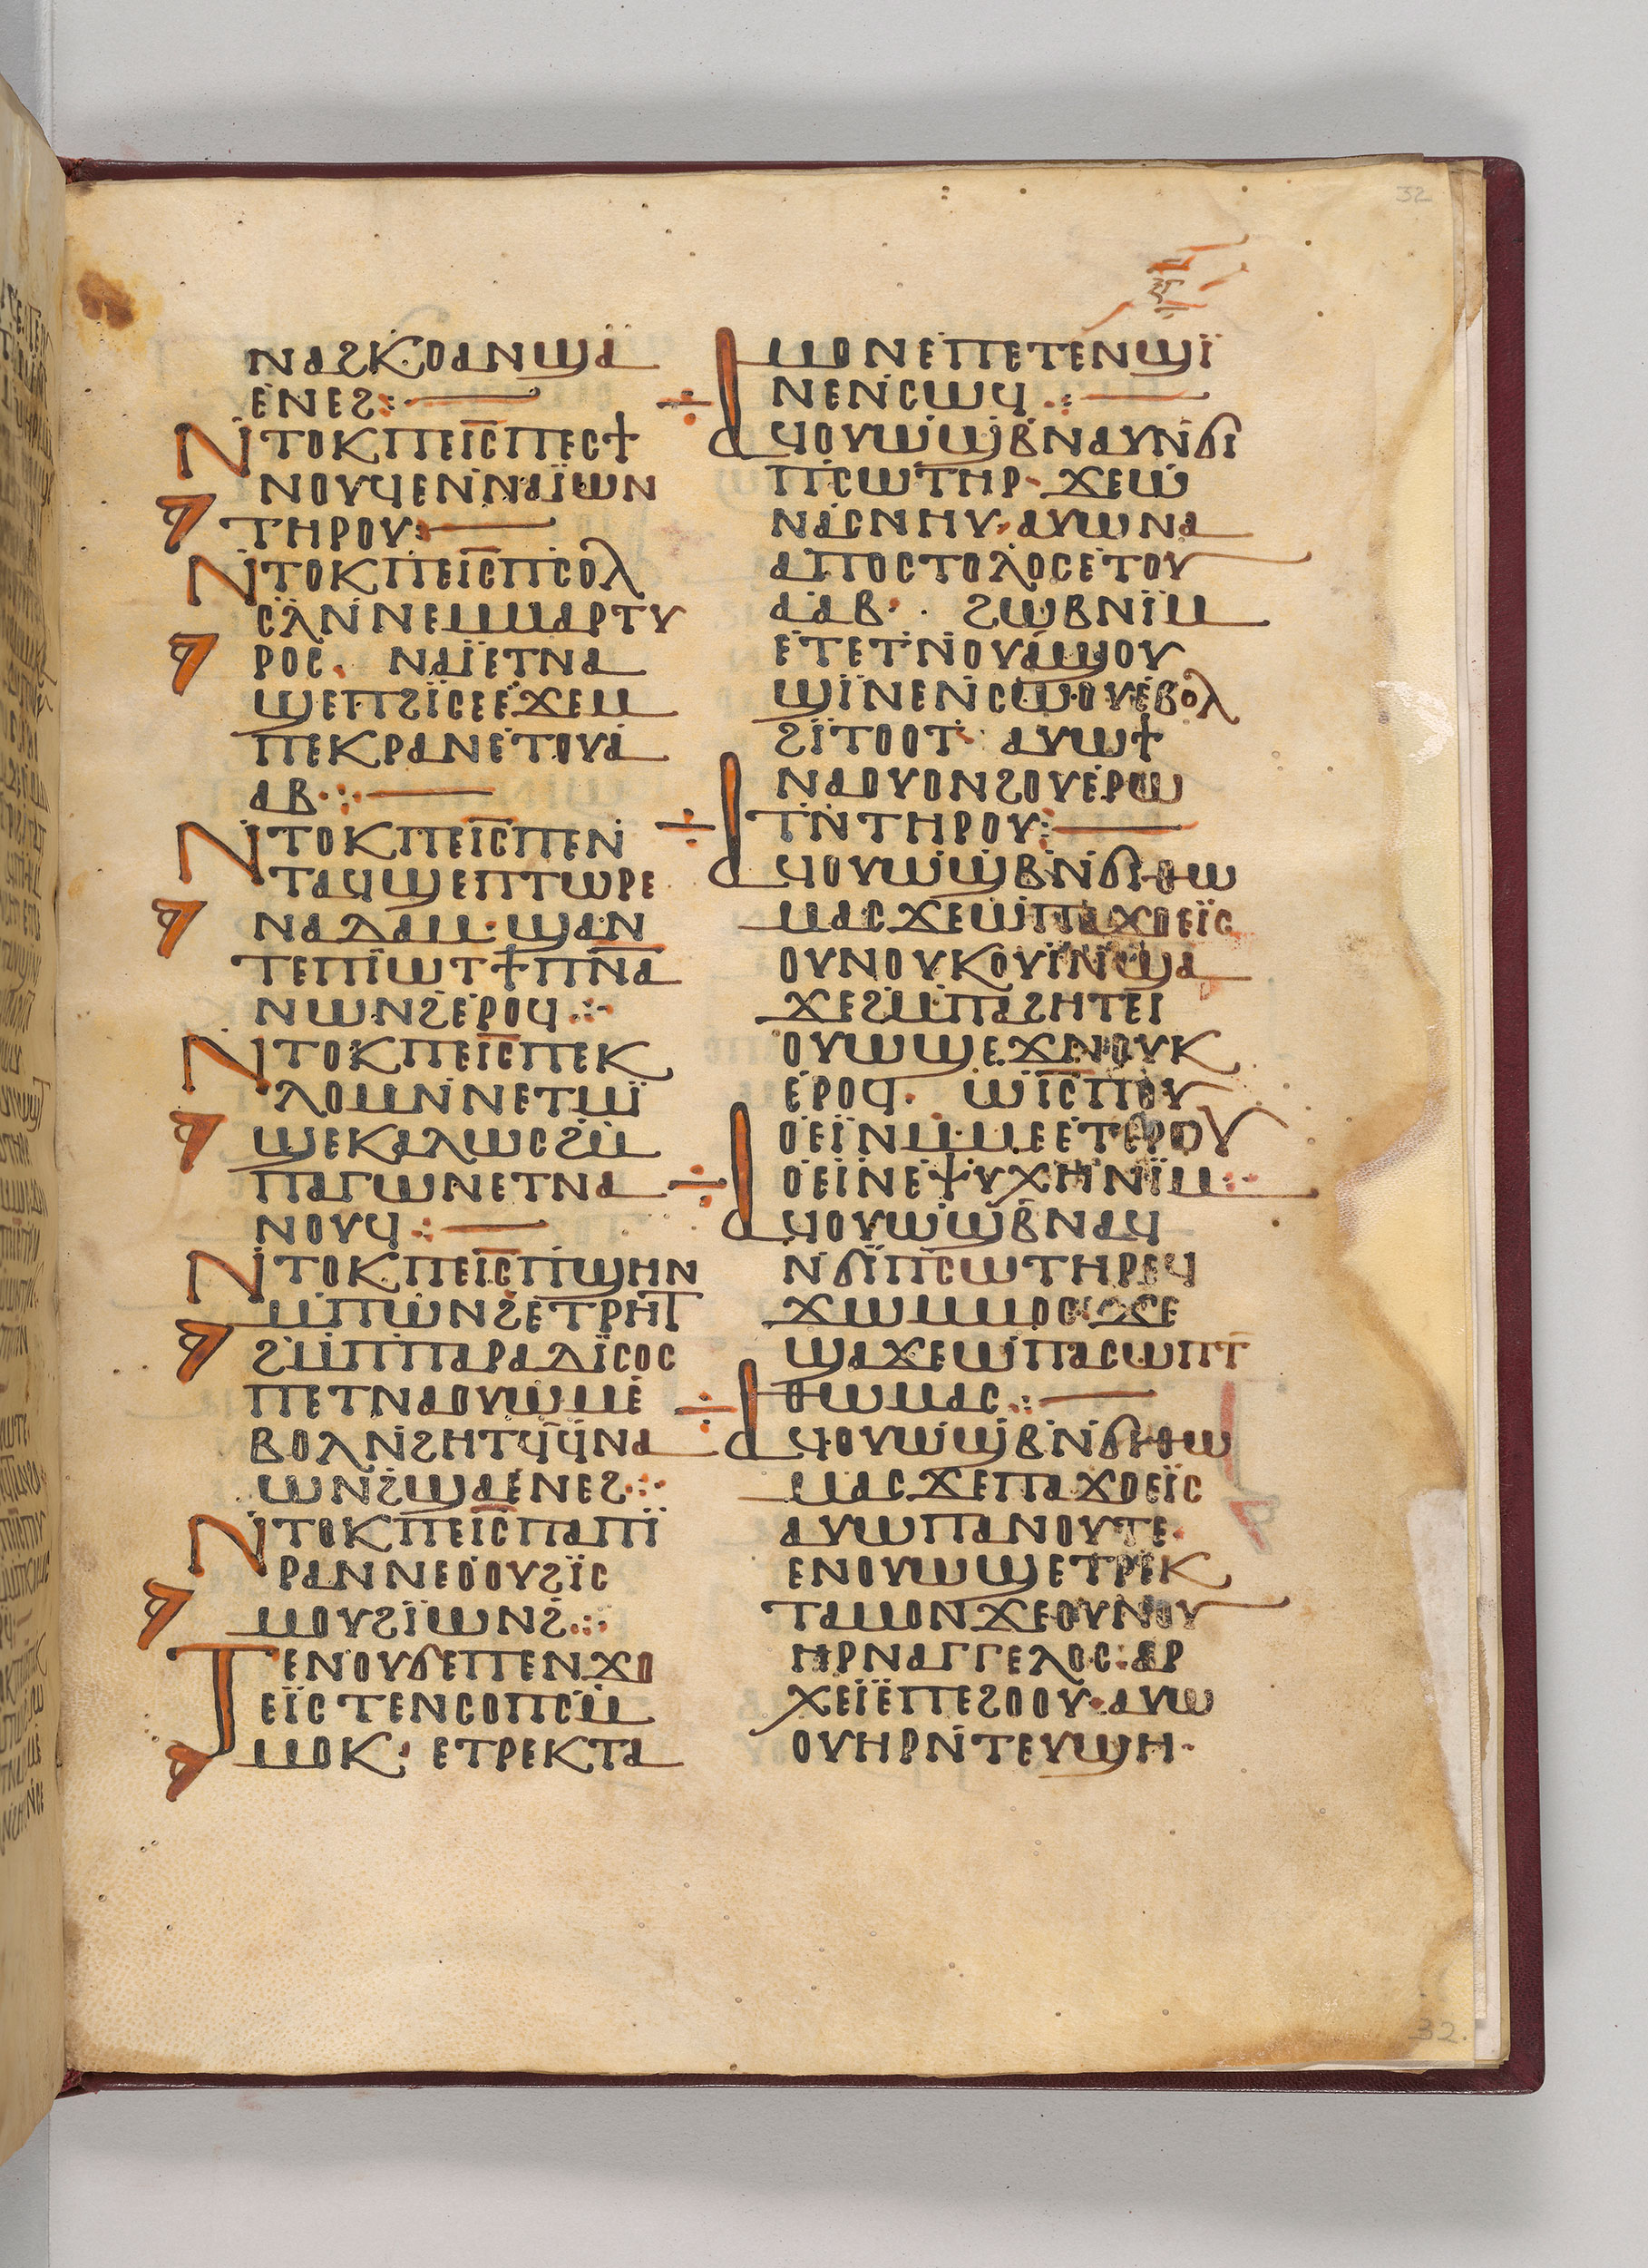 32
ⲛⲁϩⲕ·ⲟⲁⲛϣⲁ̈
ⲉⲛⲉϩ⁘
ⲛ̇ⲧⲟⲕⲡⲉⲓ̅ⲥ̅ⲡⲉⲥϯ
ⲛⲟⲩϥⲉⲛ̇ⲛⲁⲓ̈ⲱⲛ
ⲧⲏⲣⲟⲩ:
ⲛ̇ⲧⲟⲕⲡⲉⲓ̅ⲥ̅ⲡ̇ⲥⲟⲗ
ⲥⲗ̇ⲛ̇ⲛⲉⲙⲙⲁⲣⲧⲩ
ⲣⲟⲥ. ⲛⲁⲓ̈ⲉⲧⲛⲁ
ϣⲉⲡϩⲓ̈ⲥⲉⲉ̇ϫⲉⲙ
ⲡⲉⲕⲣⲁⲛⲉ̇ⲧⲟⲩⲁ̇
ⲁⲃ⁘
ⲛ̇ⲧⲟⲕⲡⲉⲓ̅ⲥ̅ⲡⲉⲛ̇
ⲧⲁϥϣⲉⲡⲧⲱⲣⲉ
ⲛⲁⲇⲁⲙ·ϣⲁⲛ
ⲧⲉⲡⲓ̈ⲱⲧϯⲡⲛ̅ⲁ̅
ⲛⲱⲛϩⲉ̇ⲣⲟϥ⁘
ⲛ̇ⲧⲟⲕⲡⲉⲓ̅ⲥ̅ⲡⲉⲕ
ⲗⲟⲙⲛ̇ⲛⲉⲧⲙⲓ̈
ϣⲉⲕⲁⲗⲱⲥϩⲙ̇
ⲡⲁⲅⲱⲛⲉⲧⲛⲁ
ⲛⲟⲩϥ⁘
ⲛ̇ⲧⲟⲕⲡⲉⲓ̅ⲥ̅ⲡ̇ϣⲏⲛ
ⲙ̇ⲡⲱ̇ⲛϩⲉ̇ⲧⲣⲏⲧ
ϩⲙ̇ⲡ̇ⲡⲁⲣⲁⲇⲓ̈ⲥⲟⲥ
ⲡⲉⲧⲛⲁⲟⲩⲱⲙⲉ̇
ⲃⲟⲗⲛ̇ϩⲏⲧϥ̇ϥ̇ⲛⲁ
ⲱⲛϩ̇ϣⲁⲉ̇ⲛⲉϩ⁘
ⲛ̇ⲧⲟⲕⲡⲉⲓ̅ⲥ̅ⲡⲁⲡⲓ̈
ⲣⲁⲛⲛⲉⲟ̇ⲟⲩϩⲓ̈ⲥ
ⲙⲟⲩϩⲓ̈ⲱⲛϩ̇⁘
ⲧⲉⲛⲟⲩϭⲉⲡⲉⲛϫⲟ
ⲉⲓ̈ⲥⲧⲉⲛⲥⲟⲡⲥⲙ̇
ⲙⲟⲕ· ⲉⲧⲣⲉⲕⲧⲁ
ⲙⲟⲛⲉ̇ⲡⲉⲧⲉⲛϣⲓ̈
ⲛⲉⲛ̇ⲥⲱϥ⁘
ⲁϥⲟⲩⲱ̇ϣ̇ⲃ̇ⲛⲁⲩⲛ̇ϭⲓ
ⲡ̇ⲥⲱⲧⲏⲣ· ϫⲉⲱ̇
ⲛⲁ̇ⲥⲛⲏⲩ·ⲁⲩⲱⲛⲁ
ⲁⲡⲟⲥⲧⲟⲗⲟⲥⲉ̇ⲧⲟⲩ
ⲁ̇ⲁⲃ· · ϩⲱⲃⲛⲓ̈ⲙ
ⲉ̇ⲧⲉⲧⲛ̇ⲟⲩⲁ̇ϣⲟⲩ
ϣⲓ̈ⲛⲉⲛ̇ⲥⲱ·ⲟⲩⲉ̇ⲃⲟⲗ
ϩⲓ̈ⲧⲟⲟⲧ: ⲁⲩⲱϯ
ⲛⲁⲟⲩⲟⲛϩⲟⲩⲉ̇ⲣⲱ
ⲧⲛ̇ⲧⲏⲣⲟⲩ:
ⲁϥⲟⲩⲱ̇ϣ̇ⲃⲛ̇ϭⲓⲑⲱ
ⲙⲁⲥϫⲉⲱ̇ⲡⲁϫⲟⲉⲓ̈ⲥ
ⲟⲩⲛⲟⲩⲕⲟⲩⲓ̈ⲛ̇ϣⲁ
ϫⲉϩⲙ̇ⲡⲁϩⲏⲧⲉⲓ̈
ⲟⲩⲱϣⲉϫⲛⲟⲩⲕ
ⲉ̇ⲣⲟϥ· ⲱ̇ⲓ̅ⲥ̅ⲡⲟⲩ
ⲟⲉⲓ̈ⲛⲙ̇ⲙⲉⲉ̇ⲧⲉⲣⲟⲩ
ⲟⲉⲓ̈ⲛⲉⲯⲩⲭⲏⲛⲓ̈ⲙ⁘
ⲁϥⲟⲩⲱ̇ϣ̇ⲃ̇ⲛⲁϥ
ⲛ̇ϭⲓ̈ⲡ̇ⲥⲱⲧⲏⲣⲉϥ
ϫⲱⲙⲙⲟⲥϫⲉ
ϣⲁϫⲉⲱ̇ⲡⲁⲥⲱⲡⲧ̅
ⲑⲱⲙⲁⲥ⁘
ⲁϥⲟⲩⲱ̇ϣ̇ⲃ̇ⲛ̇ϭⲓⲑⲱ
ⲙⲁⲥϫⲉⲡⲁϫⲟⲉⲓ̈ⲥ
ⲁⲩⲱⲡⲁⲛⲟⲩⲧⲉ·
ⲉⲛⲟⲩⲱϣⲉⲧⲣⲉⲕ
ⲧⲁⲙⲟⲛϫⲉⲟⲩⲛⲟⲩ
ⲏⲣⲛⲁⲅⲅⲉⲗⲟⲥ:ⲁⲣ
ⲭⲉⲓ̈ⲉ̈ⲡⲉϩⲟⲟⲩ·ⲁⲩⲱ
ⲟⲩⲏⲣⲛ̇ⲧⲉⲩϣⲏ·
32.